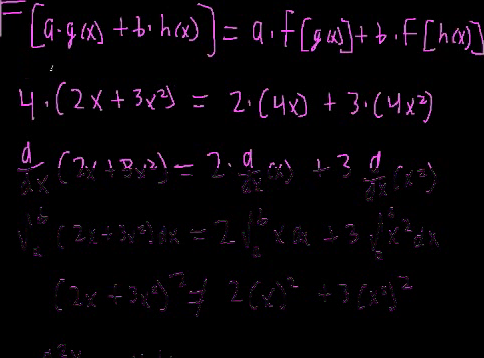 F[a·g(x) + b·h(x)] = a·f[g(x)] + b·F[h(x)]
4·(2x + 3x²) = 2·(4x) + 3·(4x²)
d/dx (2x + 3x²) = 2·d/dx (x) + 3 d/dx (x²)
∫ₐᵇ (2x + 3x²) dx = 2 ∫ₐᵇ x dx + 3 ∫ₐᵇ x² dx
(2x + 3x²)² ≠ 2(x)² + 3(x²)²